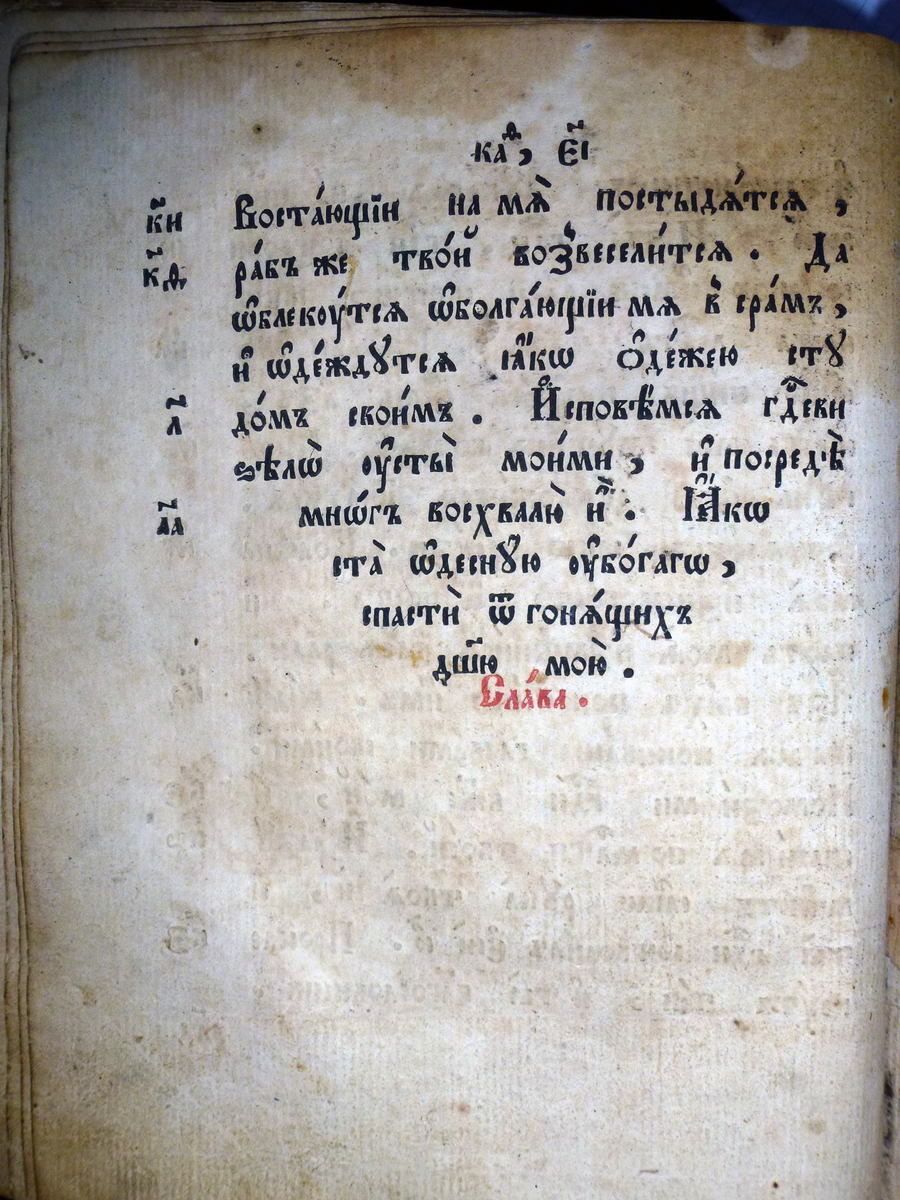 каѳ, є҃і
к҃и Воста́ющїи на мѧ̀ постыдѧ́тсѧ,
к҃ѳ ра́бъ же тво́й возвесели́тсѧ. Да
ѡ҆блекꙋ́тсѧ ѡ҆болга́ющїи мѧ в̾ сра́мъ,
и҆ ѡ҆де́ждꙋтсѧ ꙗ҆́кѡ ѻ҆де́жею стꙋ
л҃ до́мъ свои́мъ. И҆сповѣ́мсѧ гдⷭ҇еви
ѕѣлѡ̀ ᲂу҆сты̀ мои́ми, и҆ посредѣ̀
л҃а мнѡ́гъ восхвалю̀ и҆̀. Ꙗ҆́кѡ
ста̀ ѡ҆деснꙋ́ю ᲂу҆бо́гагѡ,
спастѝ ѿ гонѧ́щихъ
дш҃ꙋ мою̀.
Сла́ва.